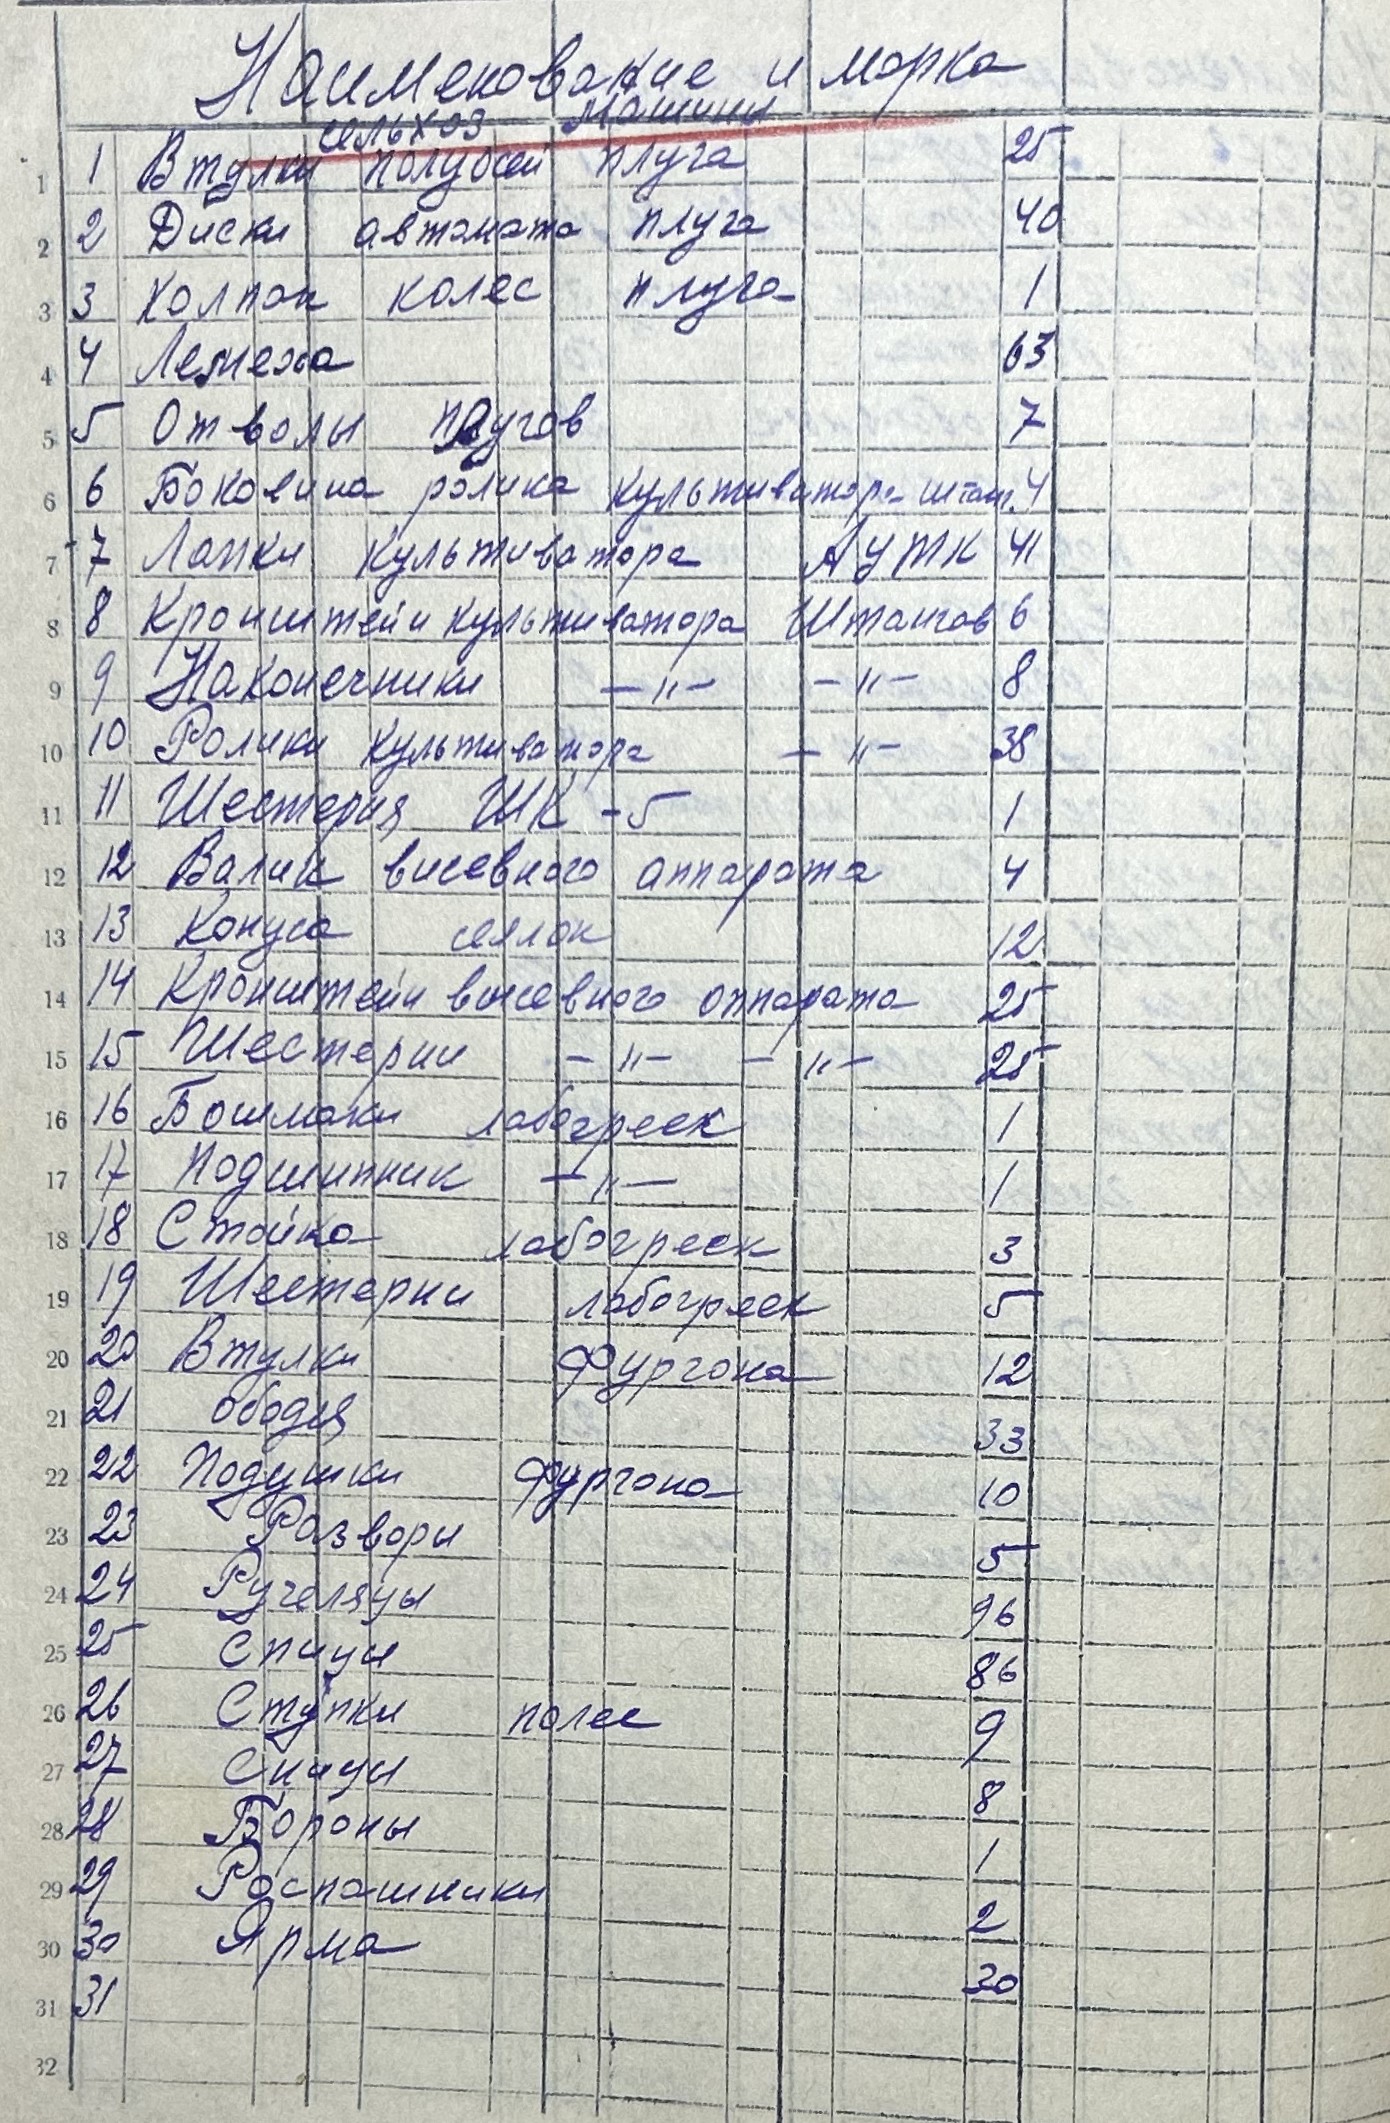 Наименование и марка
сельхоз машины
1 1 Втулки полуосей плуга 25
2 2 Диски автомата плуга 40
3 3 Колпак колес плуга 1
4 4 Лемеха 63
5 5 Отволы плугов 7
6 6 Боковина ролика культиватора штанг. 4
7 7 Лапки культиватора АУТК 41
8 8 Кронштейн культиватора Штангов 6
9 9 Наконечники -"- -"- 8
10 10 Ролики культиватора -"- 38
11 11 Шестерня ШК-5 1
12 12 Валик висевного аппарата 4
13 13 Конуса сеялок 12
14 14 Кронштейн висевного аппарата 25
15 15 Шестерни -"- -"- 25
16 16 Бошмаки лабогреек 1
17 17 Подшипник -"- 1
18 18 Стойка лабогреек 3
19 19 Шестерни лабогреек 5
20 20 Втулки Фургона 12
21 21 ободья 33
22 22 Подушки фургона 10
23 23 Розворы 5
24 24 Ручеляцы 96
25 25 Спицы 86
26 26 Ступки колес 9
27 27 Спицы 8
28 28 Бороны 1
29 29 Роспашники 2
30 30 Ярма 30
31 31
32